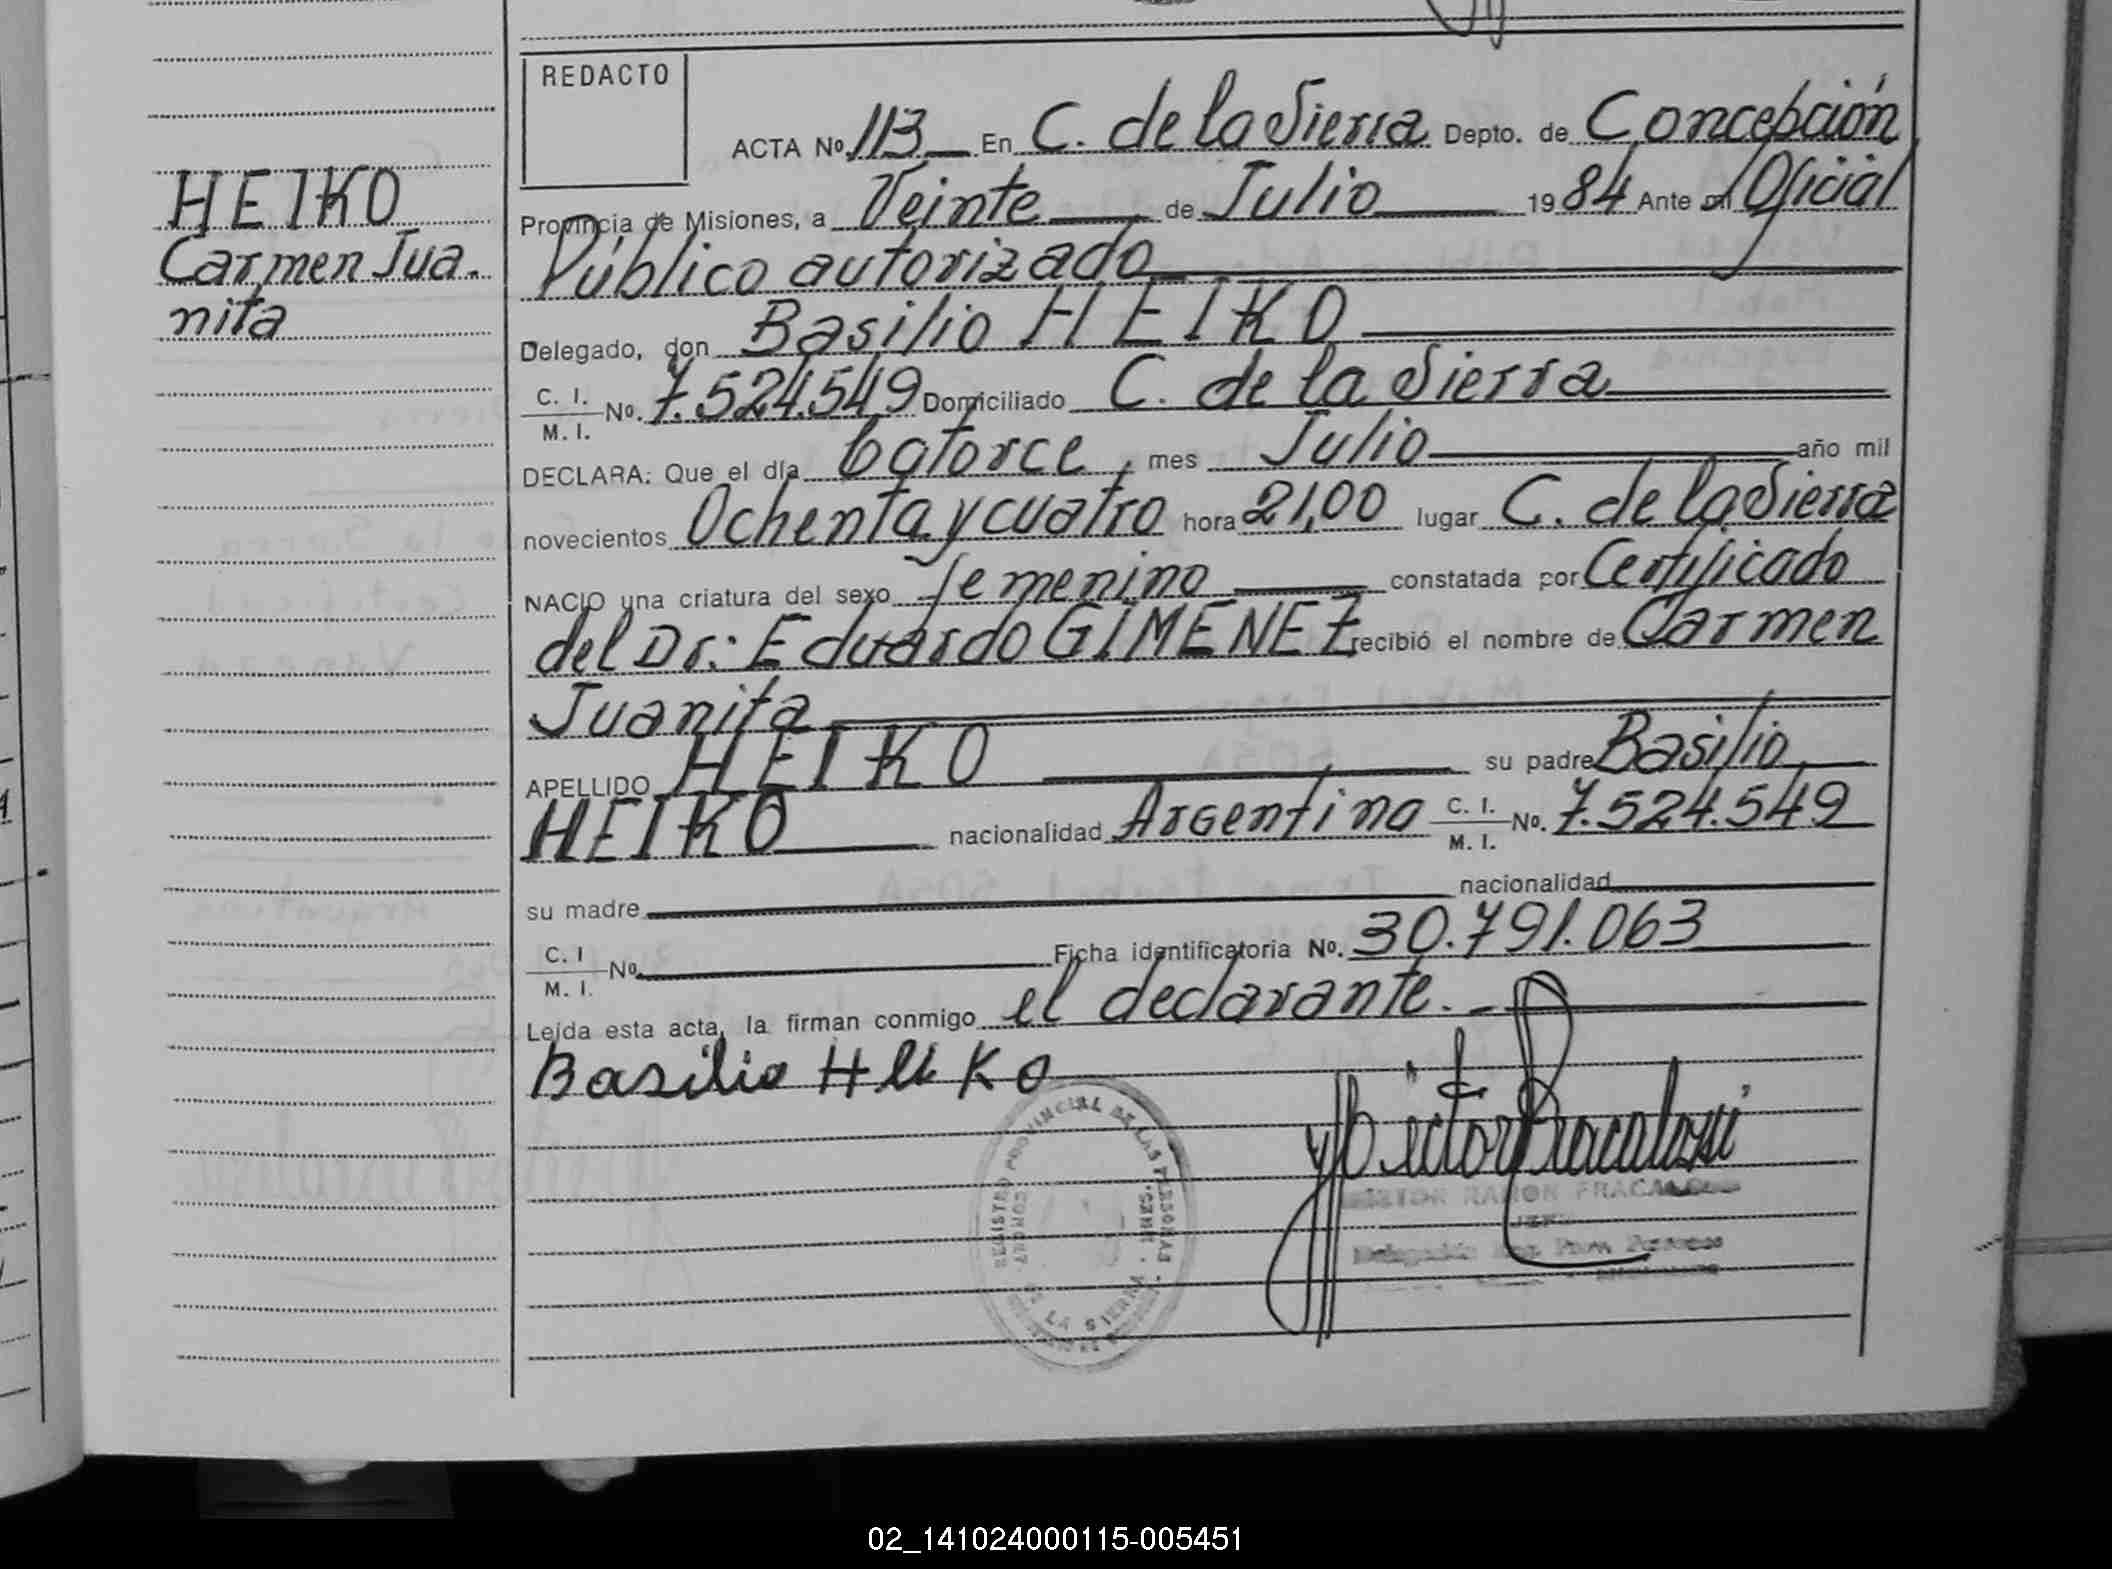 REDACTO
ACTA Nº 113 En C. de la Sierra Depto. de Concepción
Provincia de Misiones, a Veinte de Julio 1984 Ante mí Oficial
Público autorizado
HEIKO
Carmen Jua-
nita
Delegado, don Basilio HEIKO
C. I.
M. I. No. 7.524.549 Domiciliado C. de la Sierra
DECLARA: Que el día Catorce, mes Julio año mil
novecientos Ochenta y cuatro hora 21,00 lugar C. de la Sierra
NACIO una criatura del sexo femenino constatada por Certificado
del Dr.: Eduardo GIMENEZ recibió el nombre de Carmen
Juanita
APELLIDO HEIKO su padre Basilio
HEIKO nacionalidad Argentina C. I. M. I. No. 7.524.549
su madre nacionalidad
C. I M. I. No Ficha identificatoria No. 30.791.063
Leída esta acta, la firman conmigo el declarante.
Basilio HEIKO
REGISTRO PROVINCIAL DE LAS PERSONAS
DE LA SIERRA
RAMON FRACALOSSI
02_141024000115-005451